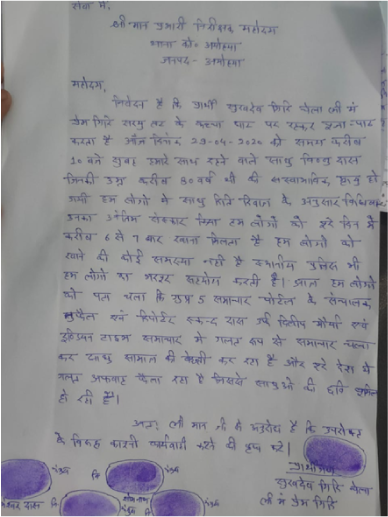 सेवा में,
श्री मान प्रभारी निरीक्षक महोदय
थाना को० अयोध्या
जनपद - अयोध्या
महोदय,
निवेदन है कि प्रार्थी सुखदेव गिरि चेला श्री मं
प्रेम गिरि सरयू तट के कच्चा घाट पर रहकर पूजा-पाठ
करता है आज दिनांक 29-04-2020 को समय करीब
10 बजे सुबह हमारे साथ रहने वाले साधु विष्णु दास
जिनकी उम्र करीब 80 वर्ष थी की अस्वाभाविक मृत्यु हो
गयी हम लोगों ने साधु रीति रिवाज के अनुसार विधिवत
उनका अंतिम संस्कार किया हम लोगों को पूरे दिन में
करीब 6 से 7 बार खाना मिलता है हम लोगों को
खाने की कोई समस्या नहीं है स्थानीय पुलिस भी
हम लोगों का भरपूर सहयोग करती है। आज हम लोगों
को पता चला कि 5 समाचार पोर्टल के संचालक
एवं रिपोर्टर दास उर्फ दिलीप मौर्या एवं
इण्डियन टाइम्स समाचार में गलत रूप से समाचार चला
कर साधु समाज की कर रहा है और पूरे देश में
गलत अफवाह फैला रहा है जिससे साधुओं की छवि धूमिल
हो रही है।
अतः श्री मान जी से अनुरोध है कि उपरोक्त
के विरुद्ध कानूनी कार्यवाही करने की कृपा करें।
प्रार्थीगण
सुखदेव गिरि चेला
श्री मं प्रेम गिरि
दास